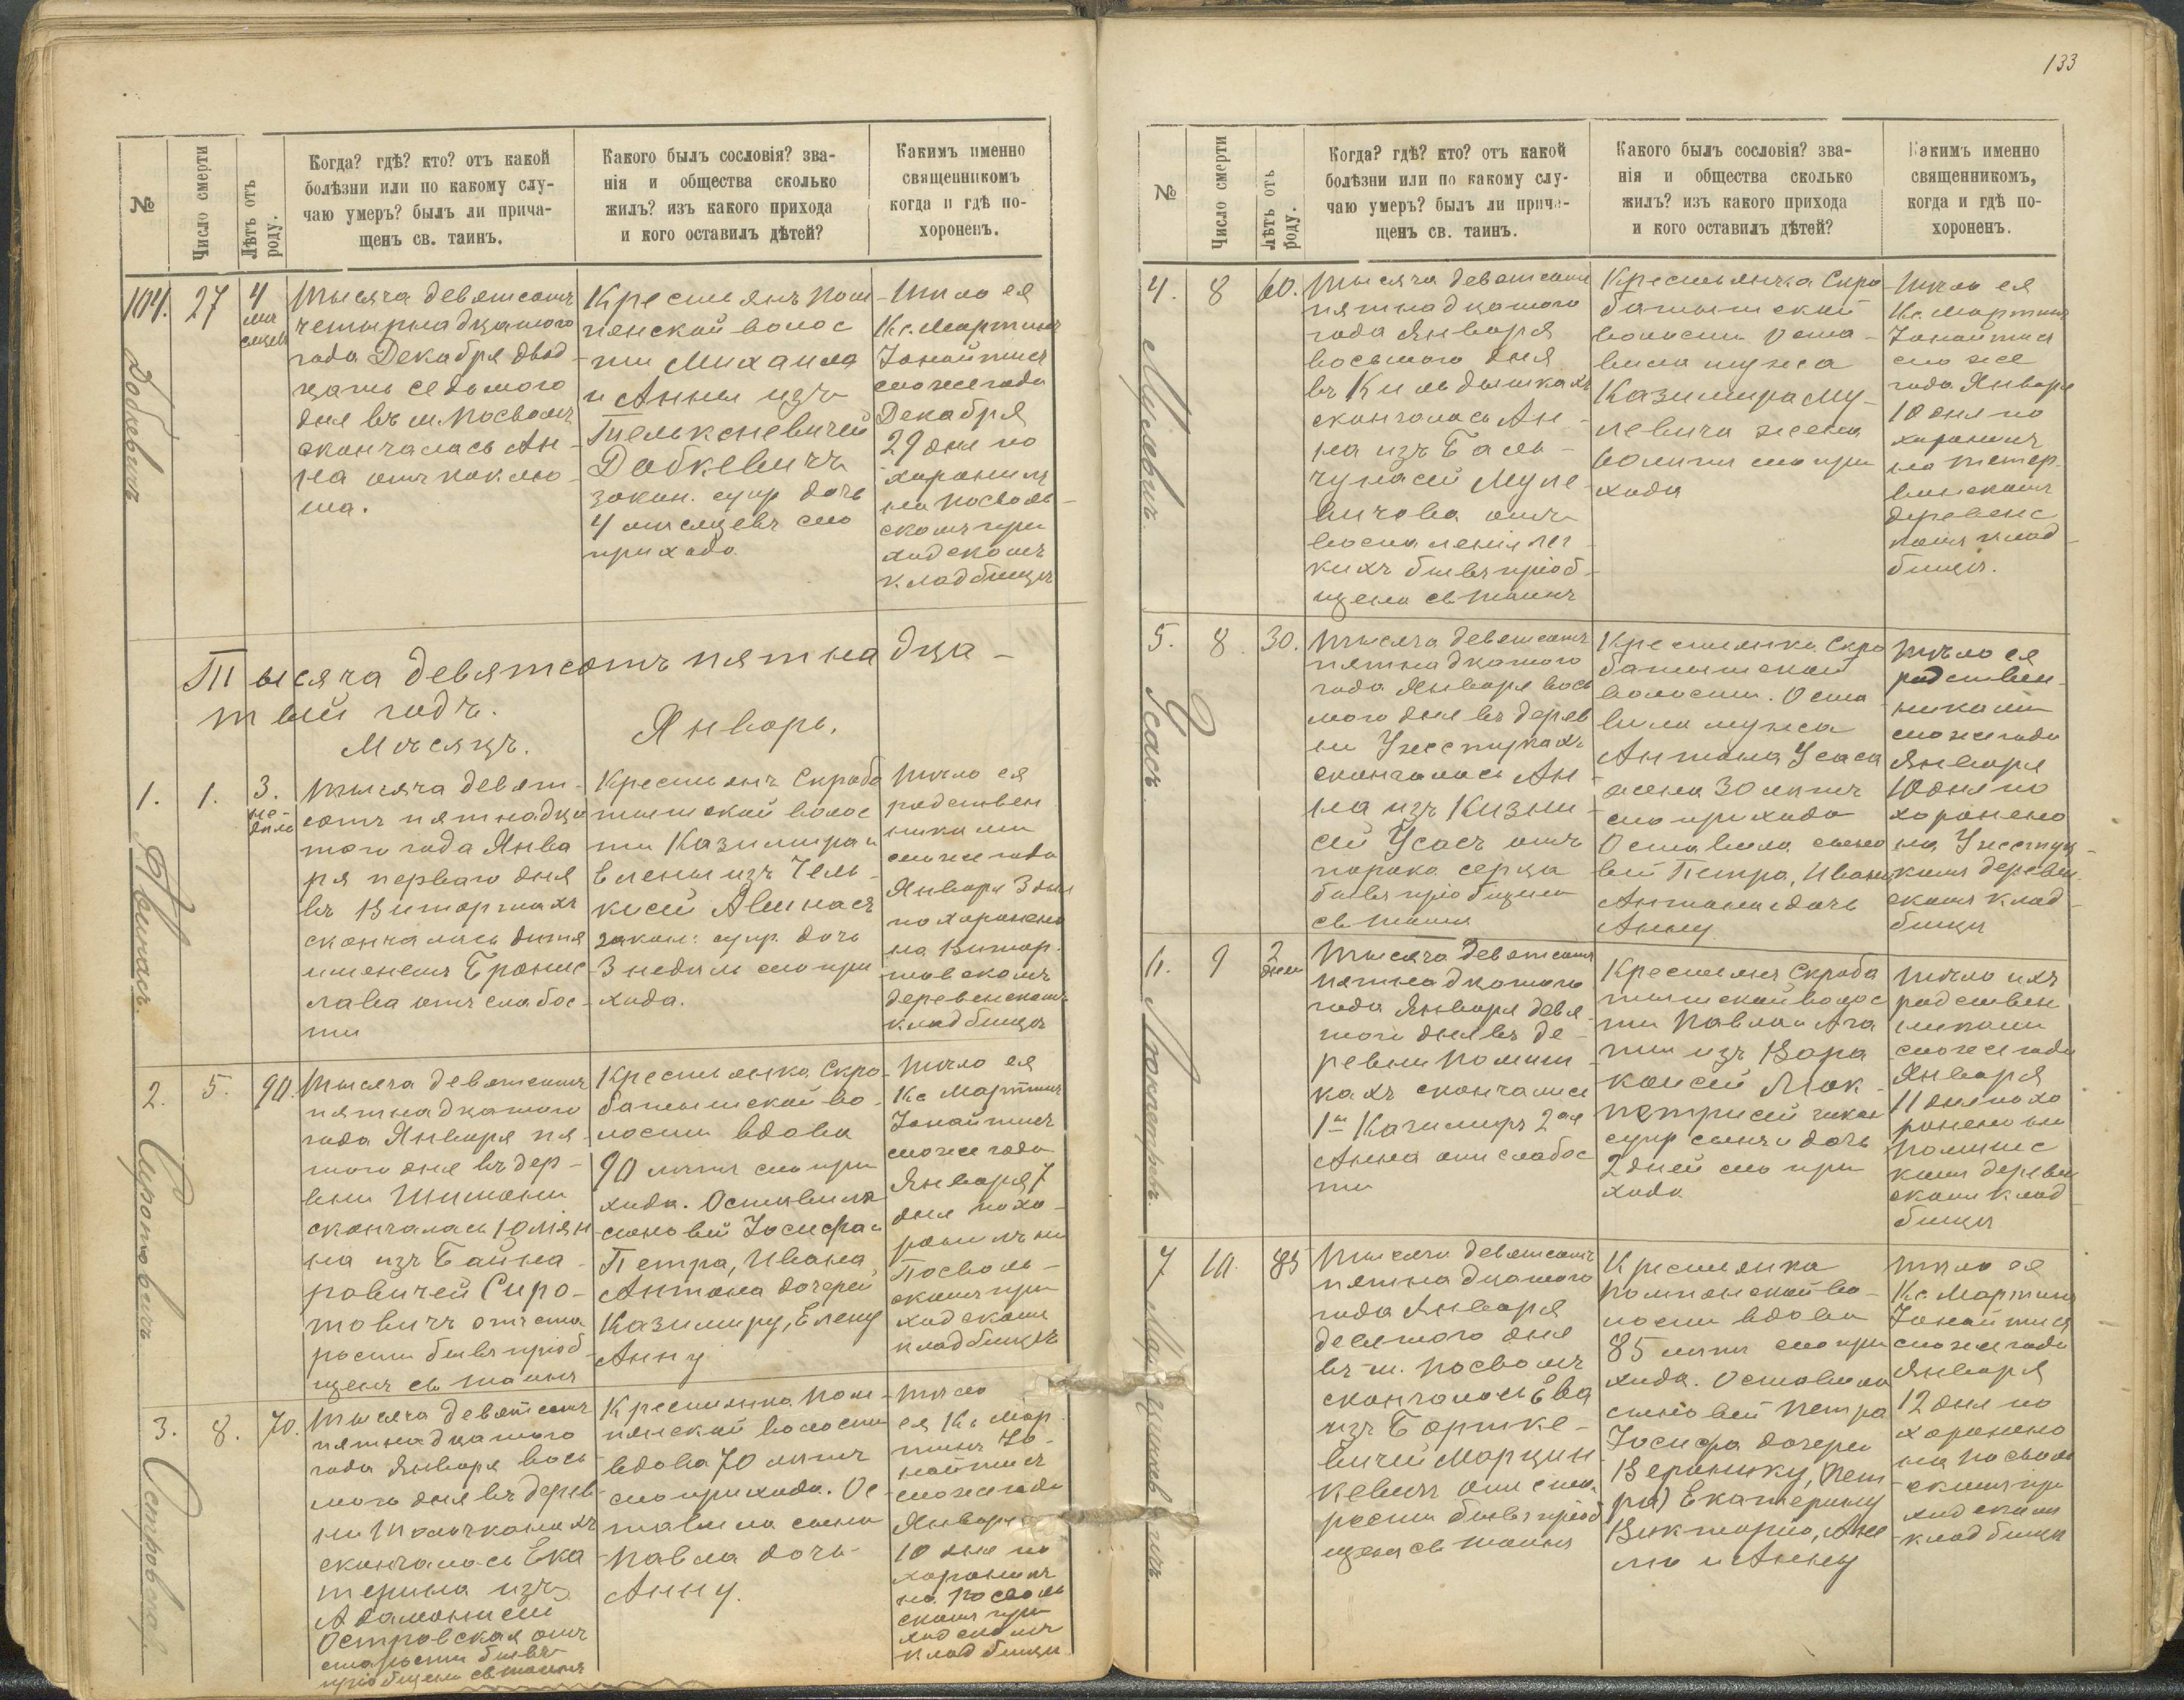 133
№
Число смерти
Лѣтъ отъ роду.
Когда? гдѣ? кто? отъ какой
болѣзни или по какому слу-
чаю умеръ? былъ ли прича-
щенъ св. таинъ.
Какого былъ сословія? зва-
нія и общества сколько
жилъ? изъ какого прихода
и кого оставилъ дѣтей?
Какимъ именно
священникомъ
когда и гдѣ по-
хороненъ.
104.
Добкевичъ
27
4
мѣ
сяцевъ
Тысяча девятсотъ
четырнадцатого
года Декабря двад-
цать седьмого
дня въ м. Посволь
скончалась Ан-
на отъ коклю-
ша.
Крестьянъ Пом-
пянской волос
ти Михаила
и Анны изъ
Тельксневичей
Добкевичъ
закон. супр. дочь
4 мѣсяцевъ сего
прихода
Тѣло ея
Кс. Мартинъ
Іонайтисъ
сего же года
Декабря
29 дня по
хоронилъ
на Посволь-
скомъ при
ходскомъ
кладбищѣ
Тысяча девятсотъ пятнадца-
тый годъ.
Мѣсяцъ. Январь.
1.
Авинасъ.
1.
3.
не-
дѣль
Тысяча девят-
сотъ пятнадца
того года Янва
ря перваго дня
въ Биторжахъ
скончалась дитя
именемъ Бронис
лава отъ слабос-
ти
Крестьянъ Скроба
тишской волос
ти Казимира и
Елены изъ Чель-
кисей Авинасъ
закон: супр. дочь
3 недѣль сего при
хода.
Тѣло ея
родствен
никами
сего же года
Января 3 дня
похоронено
на
деревенскомъ
кладбищѣ
2.
Сиротовичъ
5.
90.
Тысяча девятсотъ
пятнадцатого
года Января пя-
того дня въ дер-
вни Шимони
скончалась Юлян
на изъ Байна-
ровичей Сиро-
товичъ отъ ста
рости бывъ пріоб
щенъ св таинъ
Крестьянка Скро-
батышской во-
лости вдова
90 лѣтъ сего при
хода. Оставила
сыновей Іосифа и
Петра, Ивана,
Антона дочерей
Казимиру, Елену
Анну
Тѣло ея
Кс Мартинъ
Іонайтисъ
сего же года
Января 7
дня похо-
ронилъ на
Посволь-
скомъ при
ходскомъ
кладбищѣ
3.
Островская
8.
70.
Тысяча девятсотъ
пятнадцатого
года Января вось
мого дня въ дерев
ни
скончалась Ека
терина изъ
Адамонисей
Островская отъ
старости бывъ
пріобщена св таинъ
Крестьянка Пом-
пянской волости
вдова 70 лѣтъ
сего прихода. Ос-
тавила сына
Павла дочь
Анну.
Тѣло
ея Кс Мар
тинъ Іо-
найтисъ
сего же года
Января
10 дня по
хоронилъ
на Посволь
скомъ при
ходскомъ
кладбищѣ
№
Число смерти
Лѣтъ отъ роду.
Когда? гдѣ? кто? отъ какой
болѣзни или по какому слу-
чаю умеръ? былъ ли прича-
щенъ св. таинъ.
Какого былъ сословія? зва-
нія и общества сколько
жилъ? изъ какого прихода
и кого оставилъ дѣтей?
Какимъ именно
священникомъ,
когда и гдѣ по-
хороненъ.
4.
Мулевичъ.
8
60.
Тысяча девятсотъ
пятнадцатого
года Января
восьмого дня
въ Кильдышкахъ
скончалась Ан-
на изъ Баль-
чунасей Муле-
вичова отъ
воспаленія лег-
кихъ бывъ пріоб-
щена св таинъ
Крестьянка Скро
батышской
волости оста-
вила мужа
Казимира Му-
левича жена
60 лѣтъ сего при
хода
Тѣло ея
Кс. Мартинъ
Іонайтисъ
сего же
года Января
10 дня по
хоронилъ
на
деревенс
комъ клад-
бищѣ.
5.
Усасъ
8.
30.
Тысяча девятсотъ
пятнадцатого
года Января вось
мого дня въ дерев
ни Ужспукахъ
скончалась Ан-
на изъ Кизни-
сей Усасъ отъ
порока серца
бывъ пріобщена
св таинъ
Крестьянка Скро
батышской
волости. Оста
вила мужа
Антона Усаса
жена 30 лѣтъ
сего прихода
Оставила сыно
вей Петра, Ивана
Антона и дочь
Анну
Тѣло ея
родствен-
никами
сего же года
Января
10 дня по
хоронено
на Ужспуц-
комъ деревен
скомъ клад-
бищѣ
6.
9
2
дней
Тысяча девятсотъ
пятнадцатого
года Января девя-
того дня въ де-
ревни
кахъ скончались
1ый Казимиръ 2ая
Анна отъ слабос
ти
Крестьянъ Скроба
тышской волос
ти Павла и Ага
ты изъ Вара
коисей Мок-
петрисей закон
супр сынъ и дочь
2 дней сего при
хода
Тѣло ихъ
родствен
никами
сего же года
Января
11 дня похо
ронено на
деревен
скомъ клад
бищѣ
7
10.
85
Тысяча девятсотъ
пятнадцатого
года Января
десятого дня
въ м. Посволь
скончалась Ева
изъ Бортке-
вичей Марцин
кевичъ отъ ста
рости бывъ пріоб
щена св таинъ
Крестьянка
Помпянской во-
лости вдова
85 лѣтъ сего при
хода. Оставила
сыновей Петра
Іосифа дочерей
Веронику,
Екатерину
Викторію,
и Анну
Тѣло ея
Кс. Мартинъ
Іонайтисъ
сего же года
Января
12 дня по
хоронено
на Посволь
скомъ при
ходскомъ
кладбищѣ